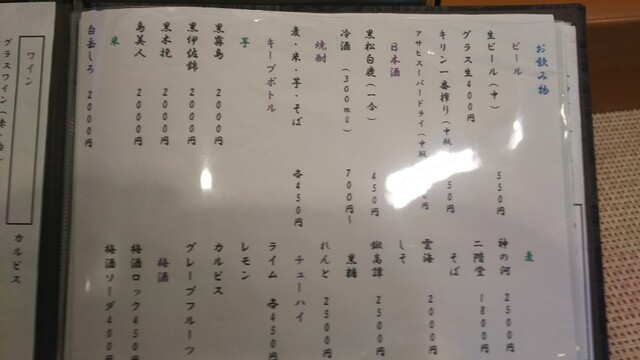 お飲み物
ビール
生ビール（中） 550円
グラス生400円
キリン一番搾り（中瓶
50円
アサヒスーパードライ（中瓶
日本酒
黒松白鹿（一合） 450円
冷酒（300ml） 700円～
焼酎
麦・米・芋・そば 各450円
キープボトル
芋
黒霧島 2000円
黒伊佐錦 2000円
黒木挽 2000円
島美人 2000円
米
白岳しろ 2000円
麦
神の河 2500円
二階堂 1800円
そば
雲海 2000円
しそ
鍛高譚 2500円
黒糖
れんと 2500円
チューハイ
ライム 各450円
レモン
カルピス
グレープフルーツ
梅酒
梅酒ロック450円
梅酒ソーダ400円
ワイン
グラスワイン（赤・
カルピス